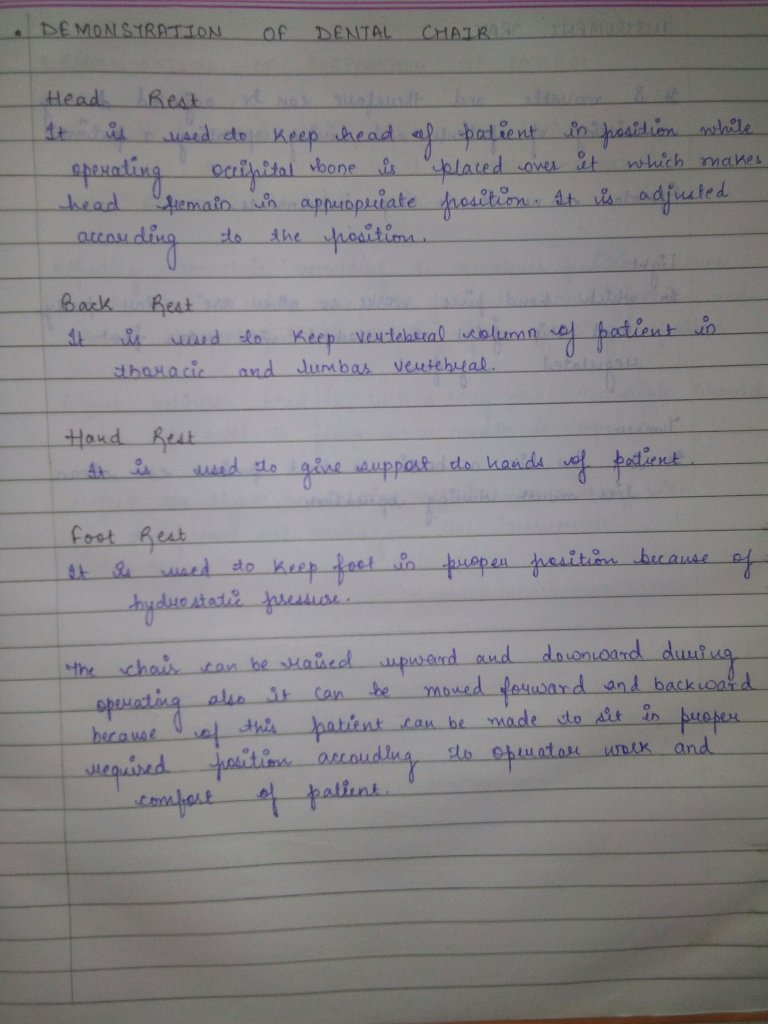 • DEMONSTRATION OF DENTAL CHAIR
Head Rest
It is used to keep head of patient in position while
operating occipital bone is placed over it which makes
head remain in appropriate position. It is adjusted
according to the position.
Back Rest
It is used to keep vertebral column of patient in
thoracic and lumbar vertebral.
Hand Rest
It is used to give support to hands of patient.
Foot Rest
It is used to keep foot in proper position because of
hydrostatic pressure.
The chair can be raised upward and downward during
operating also it can be moved forward and backward
because of this patient can be made to sit in proper
required position according to operator work and
comfort of patient.